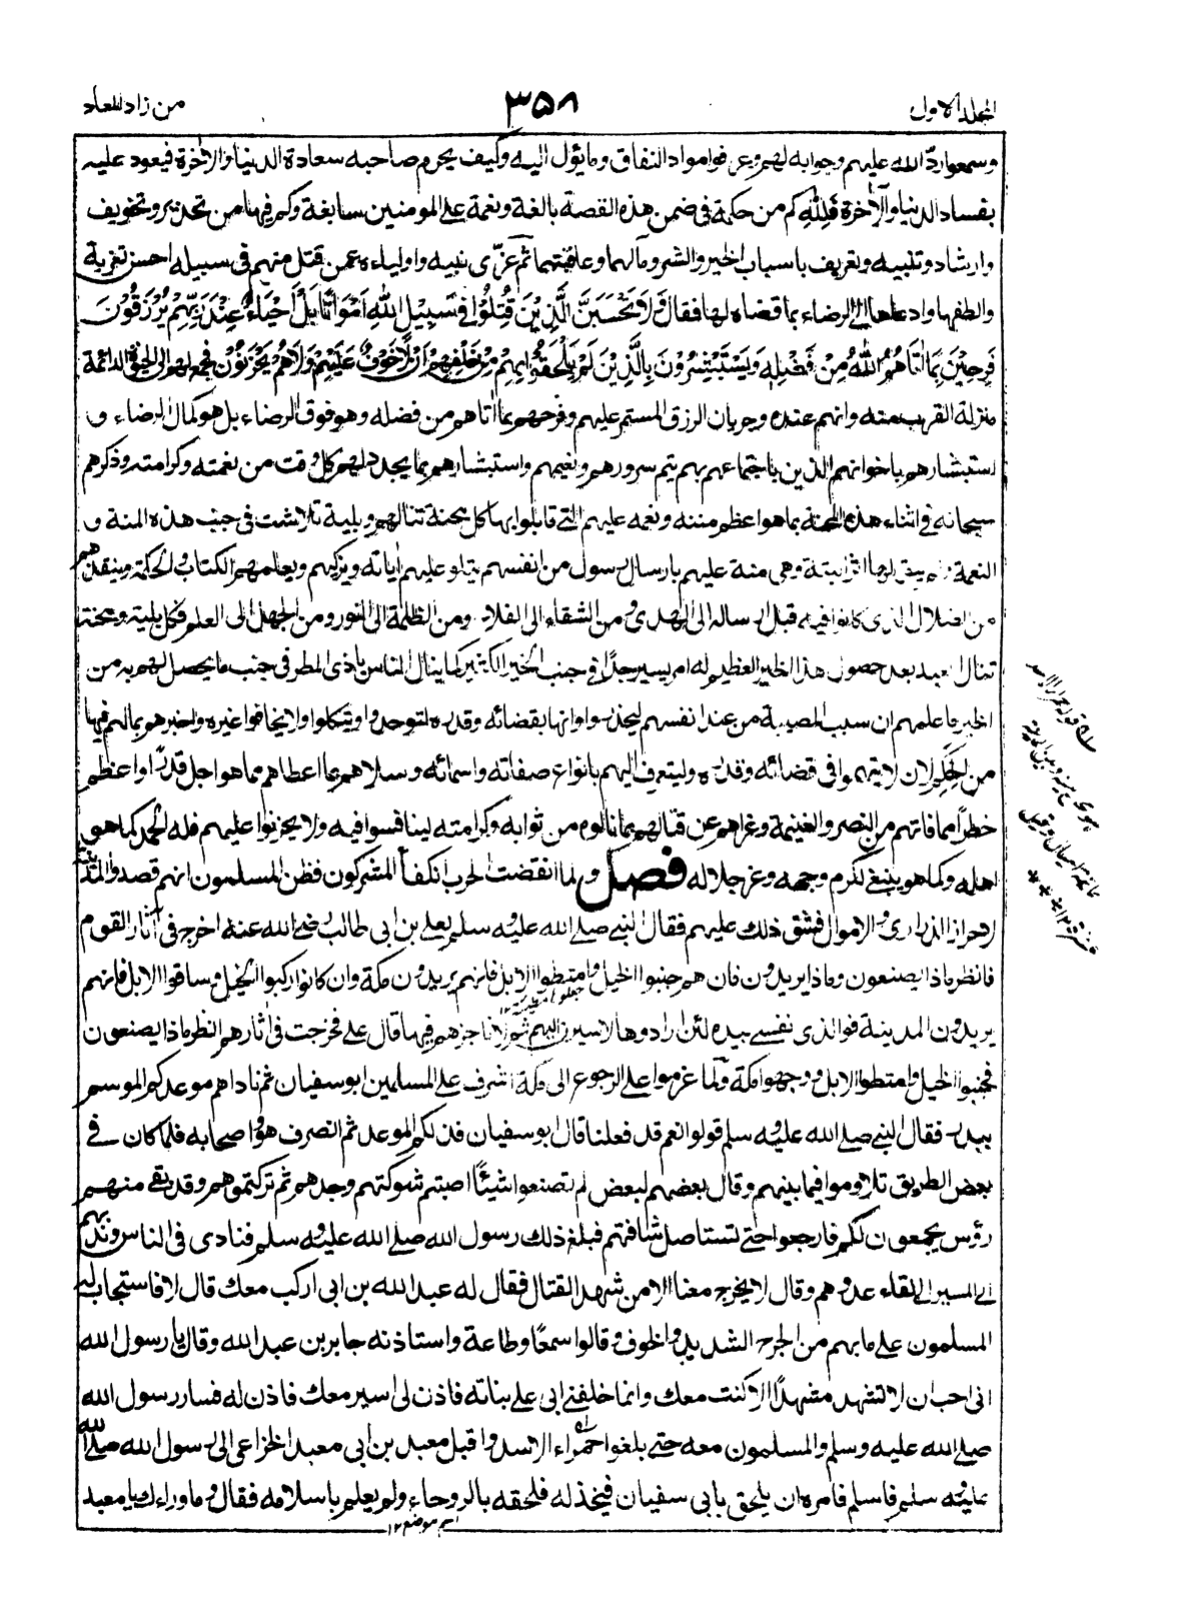 المجلد الاول
٣٥٨
من زاد المعاد
وسمعوا ردّ الله عليهم وجوابه لهم وعرفوا مواد النفاق وما يؤل اليه وكيف يحرم صاحبه سعادة الدنيا والاخرة فيعود عليه
بفساد الدنيا والآخرة فلله كم من حكمة فى ضمن هذه القصة بالغة ونعمة على المومنين سابغة وكم فيها من تحذير وتخويف
وارشاد وتنبيه وتعريف باسباب الخير والشر ومآلهما وعاقبتهما ثم عزّى نبيه واولياءه عمن قتل منهم فى سبيله احسن تعزية
والطفها وادعاها الى الرضاء بما قضاه لها فقال وَلَا تَحْسَبَنَّ الَّذِيْنَ قُتِلُوْا فِيْ سَبِيْلِ اللهِ اَمْوَاتًا بَلْ اَحْيَاءٌ عِنْدَ رَبِّهِمْ يُرْزَقُوْنَ
فَرِحِيْنَ بِمَا اٰتَاهُمُ اللهُ مِنْ فَضْلِهٖ وَيَسْتَبْشِرُوْنَ بِالَّذِيْنَ لَمْ يَلْحَقُوْا بِهِمْ مِنْ خَلْفِهِمْ اَنْ لَّا خَوْفٌ عَلَيْهِمْ وَلَا هُمْ يَحْزَنُوْنَ فجمع لهم الى الحيوة الدائمة
منزلة القرب منه وانهم عنده وجريان الرزق المستمر عليهم وفرحهم بما اتاهم من فضله وهو فوق الرضاء بل هو كمال الرضاء و
استبشارهم باخوانهم الذين باجتماعهم بهم يتم سرورهم ونعيمهم واستبشارهم بما يجدد لهم كل وقت من نعمته وكرامته وذكرهم
سبحانه فى اثناء هذه المحنة بما هو اعظم مننه ونعمه عليهم التى قابلوا بها كل محنة تنالهم وبلية تلاشت فى جنب هذه المنة و
النعمة ولم يبق لها اثر البتة وهى منة عليهم بارسال رسول من انفسهم يتلو عليهم آياته ويزكيهم ويعلمهم الكتاب والحكمة وينقذهم
من الضلال الذى كانوا فيه قبل ارساله الى الهدى ومن الشقاء الى الفلاح ومن الظلمة الى النور ومن الجهل الى العلم فكل بلية ومحنة
تنال العبد بعد حصول هذا الخير العظيم له امر يسير جدًا فى جنب الخير الكثير كما ينال الناس باذى المطر فى جنب ما يحصل لهم به من
الخير فاعلمهم ان سبب المصيبة من عند انفسهم ليحذروا وانها بقضائه وقدره لتوحدوا ويتكلوا ولا يخافوا غيره واخبرهم بما لهم فيها
من الحِكَم لان لا يتهموا فى قضائه وقدره وليتعرف اليهم بانواع صفاته واسمائه وسلاهم بما اعطاهم مما هو اجل قدرًا واعظم
خطرًا مما فاتهم من النصر والغنيمة وعزاهم عن قتلاهم بما نالوه من ثوابه وكرامته لينافسوا فيه ولا يحزنوا عليهم فله الحمد كما هو
اهله وكما هو ينبغى لكرم وجهه وعز جلاله فصل ولما انقضت الحرب انكفأ المشركون فظن المسلمون انهم قصدوا المدينة
لاحراز الذرارى والاموال فشق ذلك عليهم فقال النبى صلى الله عليه وسلم لعلى بن ابى طالب رضى الله عنه اخرج فى آثار القوم
فانظر ماذا يصنعون وماذا يريدون فان هم جنبوا الخيل وامتطوا الابل فانهم يريدون مكة وان كانوا ركبوا الخيل وساقوا الابل فانهم
يريدون المدينة فوالذى نفسى بيده لئن ارادوها لاسيرن اليهم ثم لاناجزهم فيها قال على فخرجت فى اثارهم انظر ماذا يصنعون
فجنبوا الخيل وامتطوا الابل ووجهوا مكة ولما عزموا على الرجوع الى مكة اشرف على المسلمين ابو سفيان ثم ناداهم موعدكم الموسم
ببدر فقال النبى صلى الله عليه وسلم قولوا نعم قد فعلنا قال ابو سفيان فذلكم الموعد ثم انصرف هو واصحابه فلما كان فى
بعض الطريق تلاوموا فيما بينهم وقال بعضهم لبعض لم تصنعوا شيئًا اصبتم شوكتهم وحدهم ثم تركتموهم وقد بقى منهم
رؤس يجمعون لكم فارجعوا حتى نستاصل شافتهم فبلغ ذلك رسول الله صلى الله عليه وسلم فنادى فى الناس وندبهم
الى المسير الى لقاء عدوهم وقال لا يخرج معنا الا من شهد القتال فقال له عبد الله بن ابى اركب معك قال لا فاستجاب له
المسلمون على ما بهم من الجرح الشديد والخوف وقالوا سمعًا وطاعة واستاذنه جابر بن عبد الله وقال يا رسول الله
انى احب ان لا تشهد مشهدًا الا كنت معك وانما خلفنى ابى على بناته فاذن لى اسير معك فاذن له فسار رسول الله
صلى الله عليه وسلم والمسلمون معه حتى بلغوا حمراء الاسد واقبل معبد بن ابى معبد الخزاعى الى رسول الله صلى الله
عليه وسلم فاسلم فامره ان يلحق بابى سفيان فيخذله فلحقه بالروحاء ولم يعلم باسلامه فقال وما وراءك يا معبد
اسم موضع ١٢